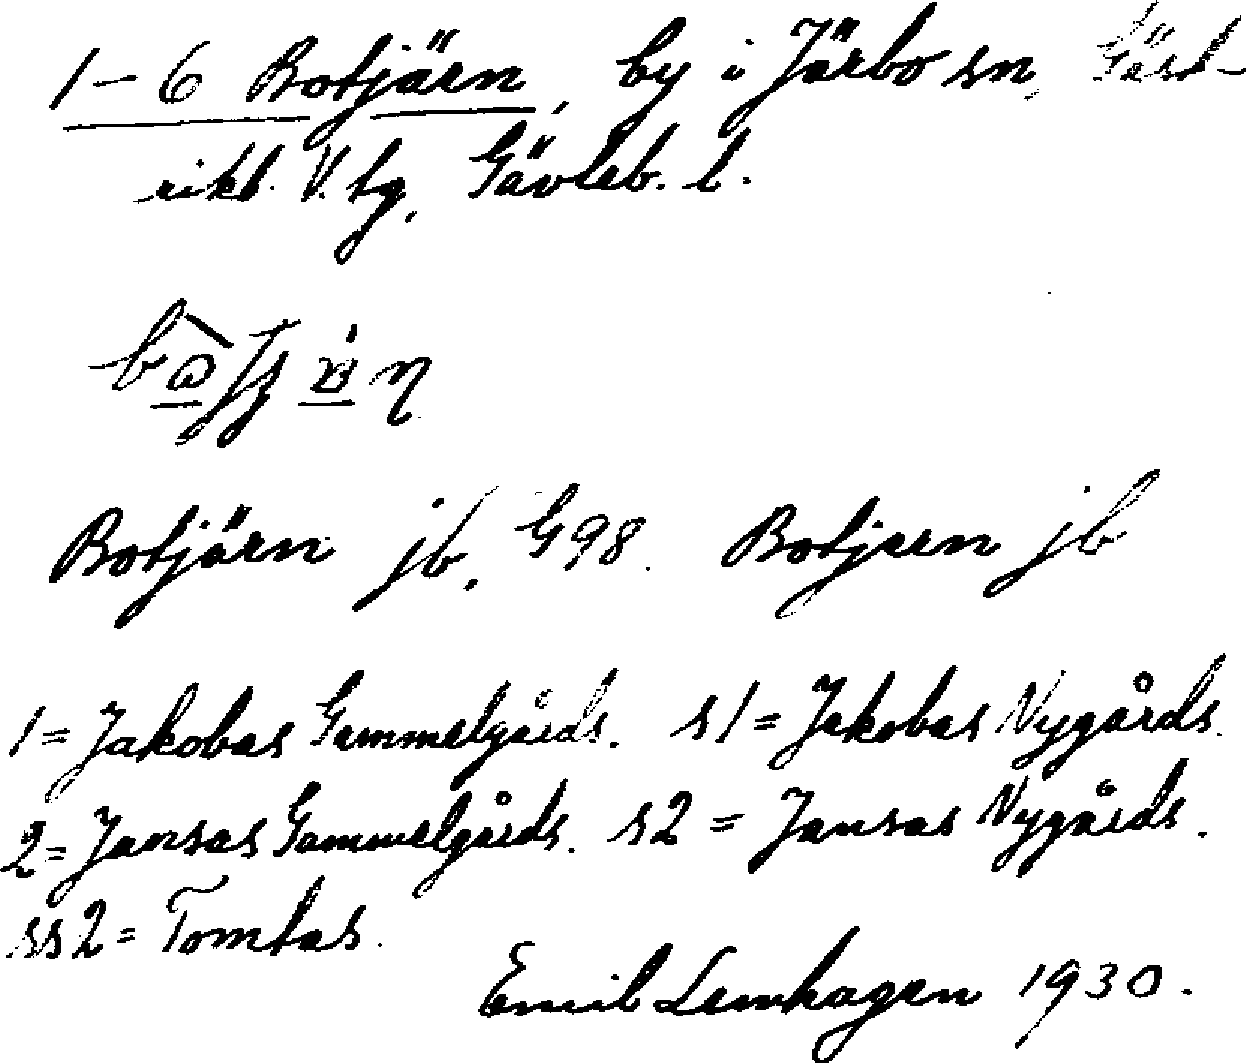 1–6 Botjärn, by i Järbo sn, Gäst-
rikl. V. tg, Gävleb. l.
Botjärn jb. G98. Botjern jb
1 = Jakobas Gammelgårds. s1 = Jakobas Nygårds.
2 = Jansas Gammelgårds. s2 = Jansas Nygårds.
ss2 = Tomtas.
Emil Lemhagen 1930.